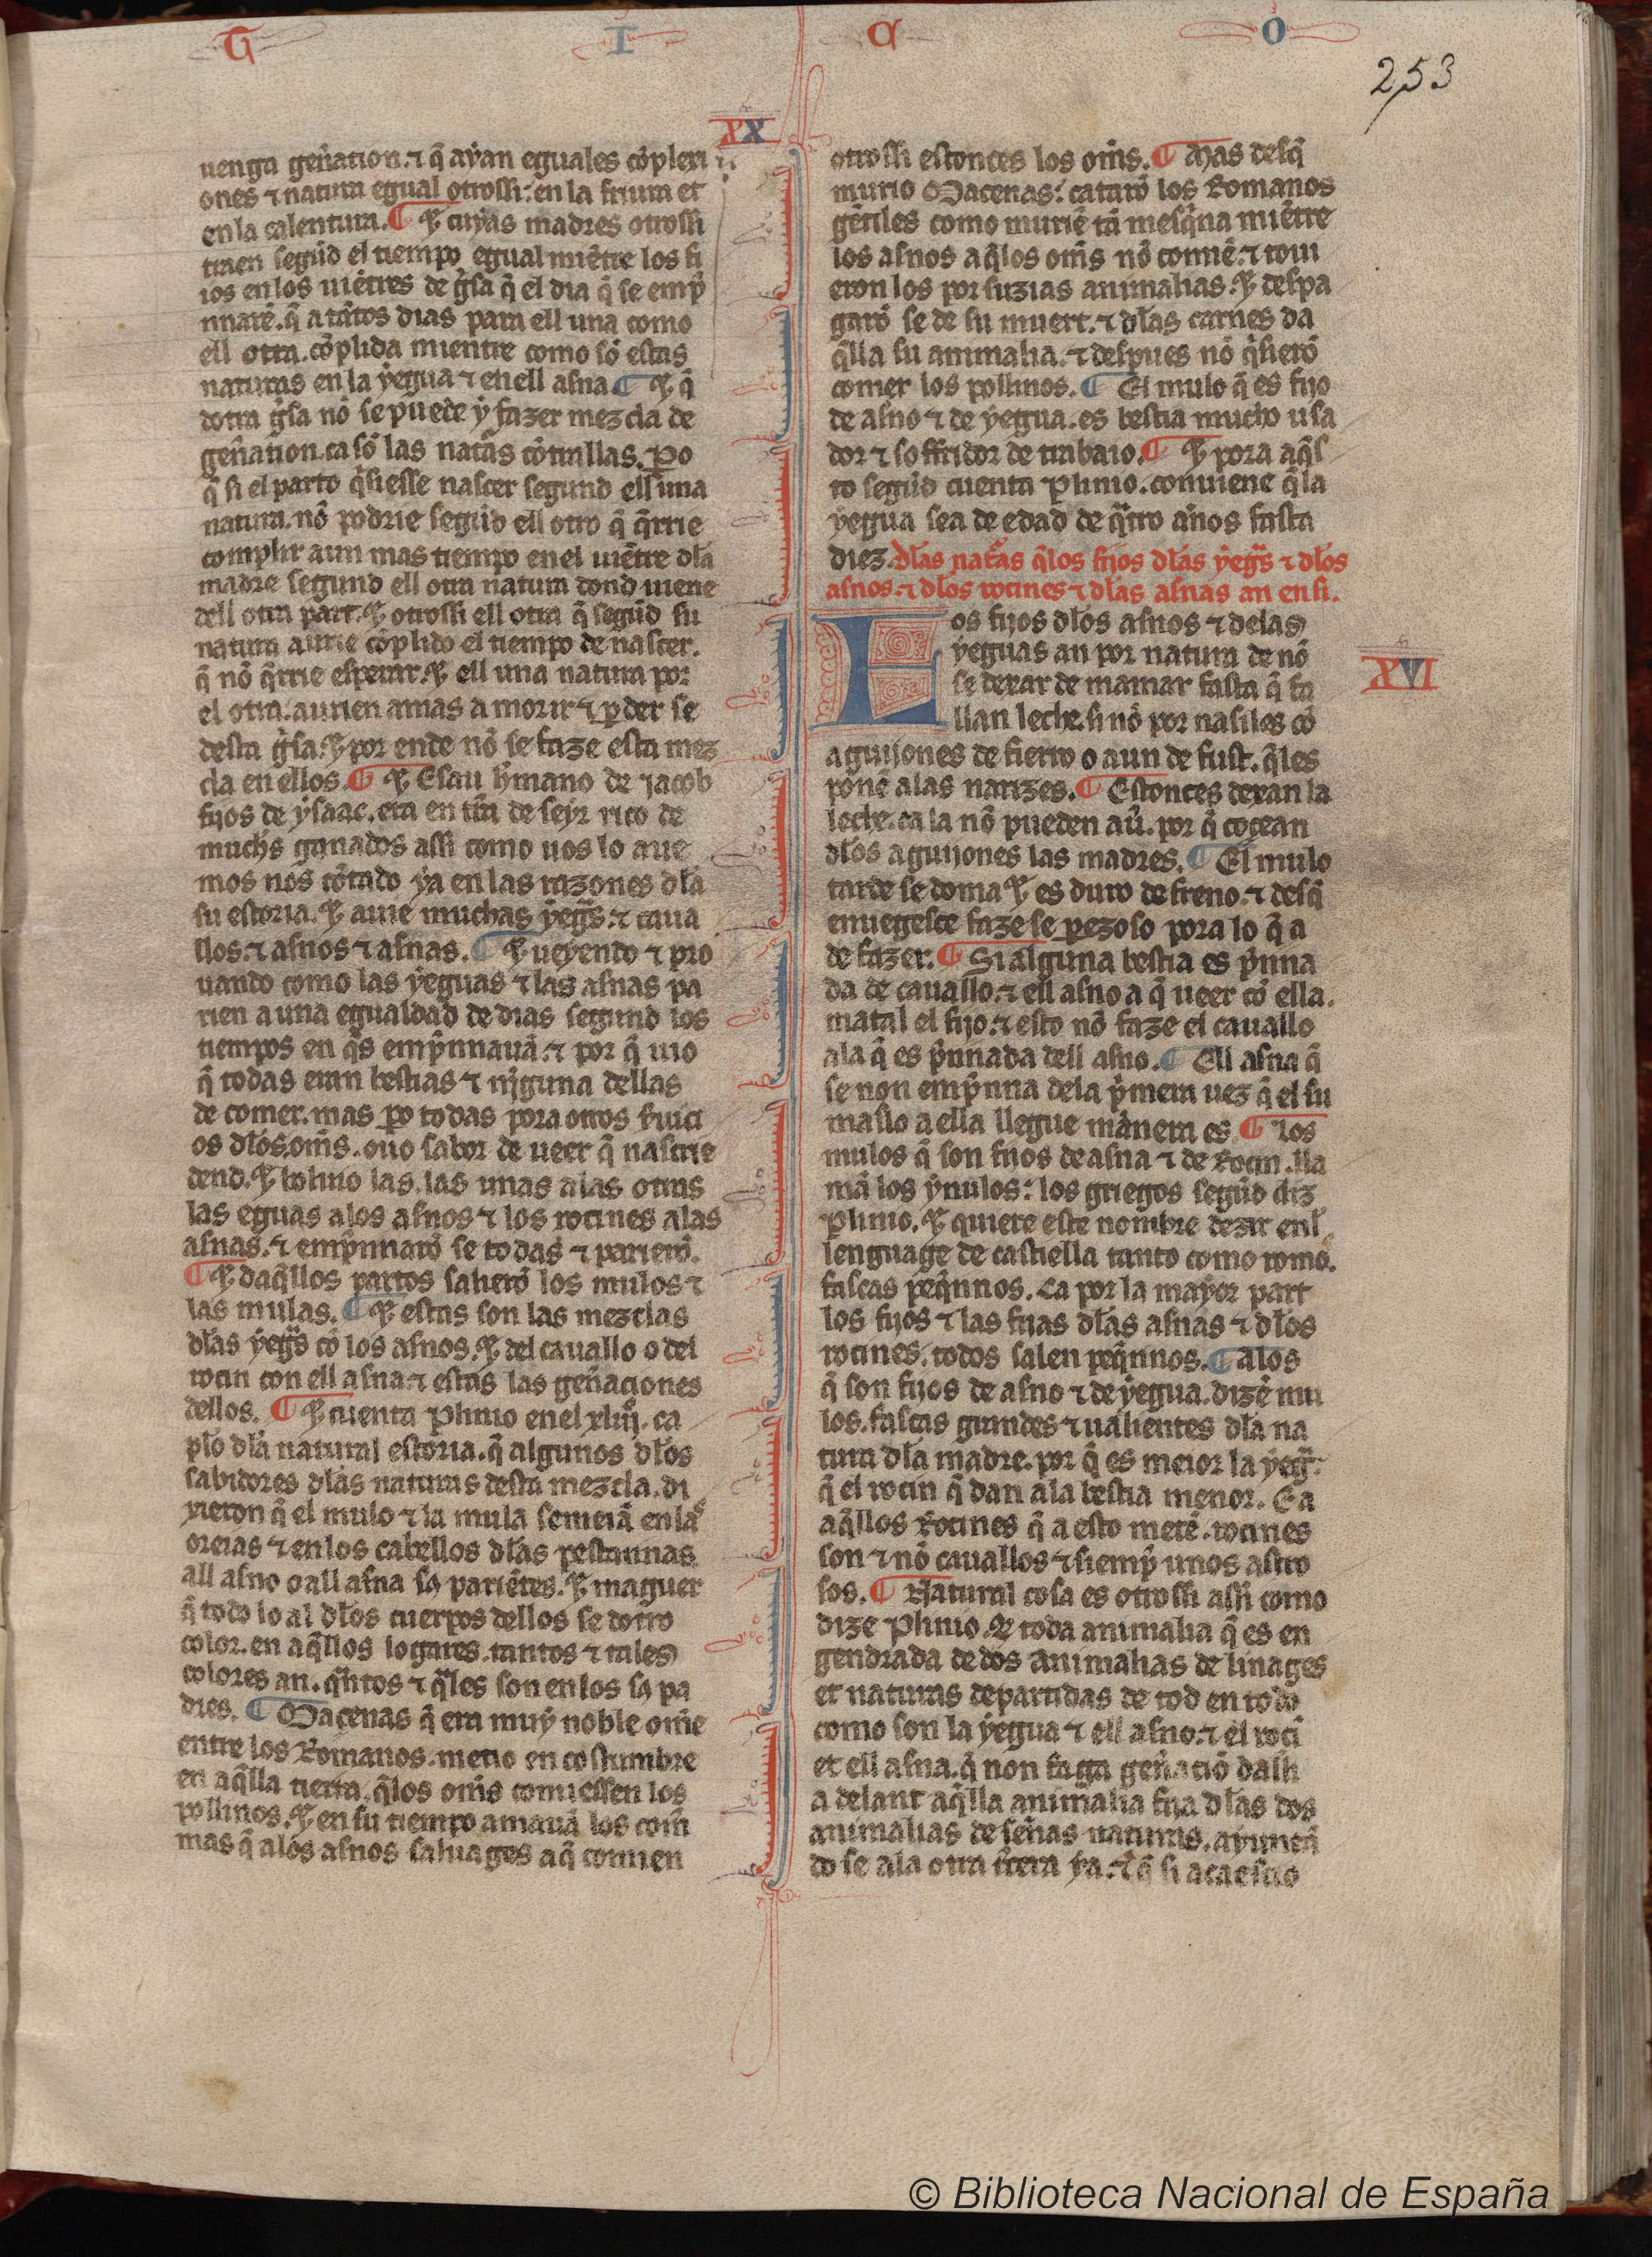 TI CO
253
XX
uenga gen̄ation. ⁊ q̄ ayan eguales cōplexi
ones ⁊ natura egual otrossi: en la friura et
en la calentura. ¶ ⁊ cuyas madres otrossi
traen segūd el tiempo egual miētre los fi
ios en los uiētres de gˢa q̄ el dia q̄ se emp̄
nnarē. q̄ a tātos dias para ell una como
ell otra. cōplida mientre como sō estas
naturas en la yegua ⁊ en ell asna ¶ ⁊ q̄
dotra gˢa nō se puede y fazer mezcla de
gen̄ation. ca sō las nat̄as cōtrallas. ꝑo
q̄ si el parto q̄siesse nascer segund ell una
natura. nō podrie segūd ell otro q̄ q̄rrie
complir aun mas tiempo en el uiētre dl̄a
madre segund ell otra natura dond uiene
dell otra part. ⁊ otrossi ell otra q̄ segūd su
natura aurie cōplido el tiempo de nascer.
q̄ nō q̄rrie esperar. ⁊ ell una natura por
el otra. aurien amas a morir ⁊ ꝑder se
desta gˢa. ⁊ por ende nō se faze esta mez
cla en ellos. ¶ ⁊ Esau h̄mano de jacob
fijos de ysaac. era en tr̄a de seyr rico de
muchˢ ganados assi como uos lo aue
mos nos cōtado ya en las razones dl̄a
su estoria. ⁊ auie muchas yegˢ. ⁊ caua
llos. ⁊ asnos ⁊ asnas. ¶ ⁊ ueyendo ⁊ pro
uando como las yeguas ⁊ las asnas pa
rien a una egualdad de dias segund los
tiempos en q̄s emp̄nnauā. ⁊ por q̄ uio
q̄ todas eran bestias ⁊ nīguna dellas
de comer. mas ꝑo todas pora otros ẜuici
os dl̄os om̄s. ouo sabor de ueer q̄ nascrie
dend. ⁊ boluio las. las unas a las otras
las eguas a los asnos ⁊ los rocines a las
asnas. ⁊ emp̄nnarō se todas ⁊ pariero.
¶ ⁊ daq̄llos partos salierō los mulos ⁊
las mulas. ¶ ⁊ estas son las mezclas
dl̄as yegˢ cō los asnos. ⁊ del cauallo o del
rocin con ell asna. ⁊ estas las gen̄aciones
dellos. ¶ ⁊ cuenta Plinio en el xliij. ca
pl̄o dl̄a natural estoria. q̄ algunos dl̄os
sabidores dl̄as naturas desta mezcla. di
xieron q̄ el mulo ⁊ la mula semeiā en las
oreias ⁊ en los cabellos dl̄as pestannas
all asno o all asna sꝯ pariētes. ⁊ maguer
q̄ todo lo al dl̄os cuerpos dellos se dotro
color. en aq̄llos logares. tantos ⁊ tales
colores an. q̄ntos ⁊ q̄les son en los sꝯ pa
dres. ¶ Maçenas q̄ era muy noble om̄e
entre los Romanos. metio en costumbre
en aq̄lla tierra. q̄ los om̄s comiessen los
pollinos. ⁊ en su tiempo amauā los com̄
mas q̄ a los asnos saluages a q̄ comien
otrossi estonces los om̄s. ¶ Mas desq̄
murio Maçenas: catarō los Romanos
gētiles como muriē tā mesq̄na miētre
los asnos a q̄ los om̄s nō comiē. ⁊ toui
eron los por suzias animalias. ⁊ despa
garō se de su muert. ⁊ dl̄as carnes da
q̄lla su animalia. ⁊ despues nō q̄sierō
comer los pollinos. ¶ El mulo q̄ es fijo
de asno ⁊ de yegua. es bestia mucho usa
dor ⁊ soffridor de trabaio. ¶ ⁊ pora aq̄s
to segūd cuenta Plinio. conuiene q̄ la
yegua sea de edad de q̄tro an̄os fasta
diez. Dl̄as nat̄as q̄ los fijos dl̄as yegˢ ⁊ dl̄os
asnos. ⁊ dl̄os rocines ⁊ dl̄as asnas an en si.
XVI
Los fijos dl̄os asnos ⁊ de las
yeguas an por natura de nō
se dexar de mamar fasta q̄ fa
llan leche. si nō por nasiles cō
aguijones de fierro o aun de fust. q̄ les
ponē a las narizes. ¶ Estonces dexan la
leche. ca la nō pueden au̅. por q̄ coçean
dl̄os aguijones las madres. ¶ El mulo
tarde se doma ⁊ es duro de freno. ⁊ desq̄
enuegesce faze se ꝑezoso pora lo q̄ a
de fazer. ¶ Si alguna bestia es p̄nna
da de cauallo. ⁊ ell asno a q̄ ueer cō ella.
matal el fijo. ⁊ esto nō faze el cauallo
a la q̄ es p̄nnada dell asno. ¶ Ell asna q̄
se non emp̄nna de la p̄mera uez q̄ el su
maslo a ella llegue mānera es. ¶ Los
mulos q̄ son fijos de asna ⁊ de Rocin. lla
mā los ynulos: los griegos segūd diz
Plinio. ⁊ quiere este nombre dezir enl
lenguage de castiella tanto como romo.
fascas peq̄nnos. Ca por la mayor part
los fijos ⁊ las fijas dl̄as asnas ⁊ dl̄os
rocines. todos salen peq̄nnos. ¶ A los
q̄ son fijos de asno ⁊ de yegua. dizē mu
los. fascas grandes ⁊ ualientes dl̄a na
tura dl̄a madre. por q̄ es meior la yegᵃ
q̄ el rocin q̄ dan a la bestia menor. Ca
aq̄llos Rocines q̄ a esto metē. rocines
son ⁊ nō cauallos ⁊ siemp̄ unos astro
sos. ¶ Natural cosa es otrossi assi como
dize Plinio. Q̄ toda animalia q̄ es en
gendrada de dos animalias de linages
et naturas departidas de tod en todo
como son la yegua ⁊ ell asno. ⁊ el rocī
et ell asna. q̄ non faga gen̄aciō dalli
a delant aq̄lla animalia fija dl̄as dos
animalias de sen̄as naturas. ayuntā
do se a la otra t̄cera ya. ⁊ q̄ si acaescio
© Biblioteca Nacional de España